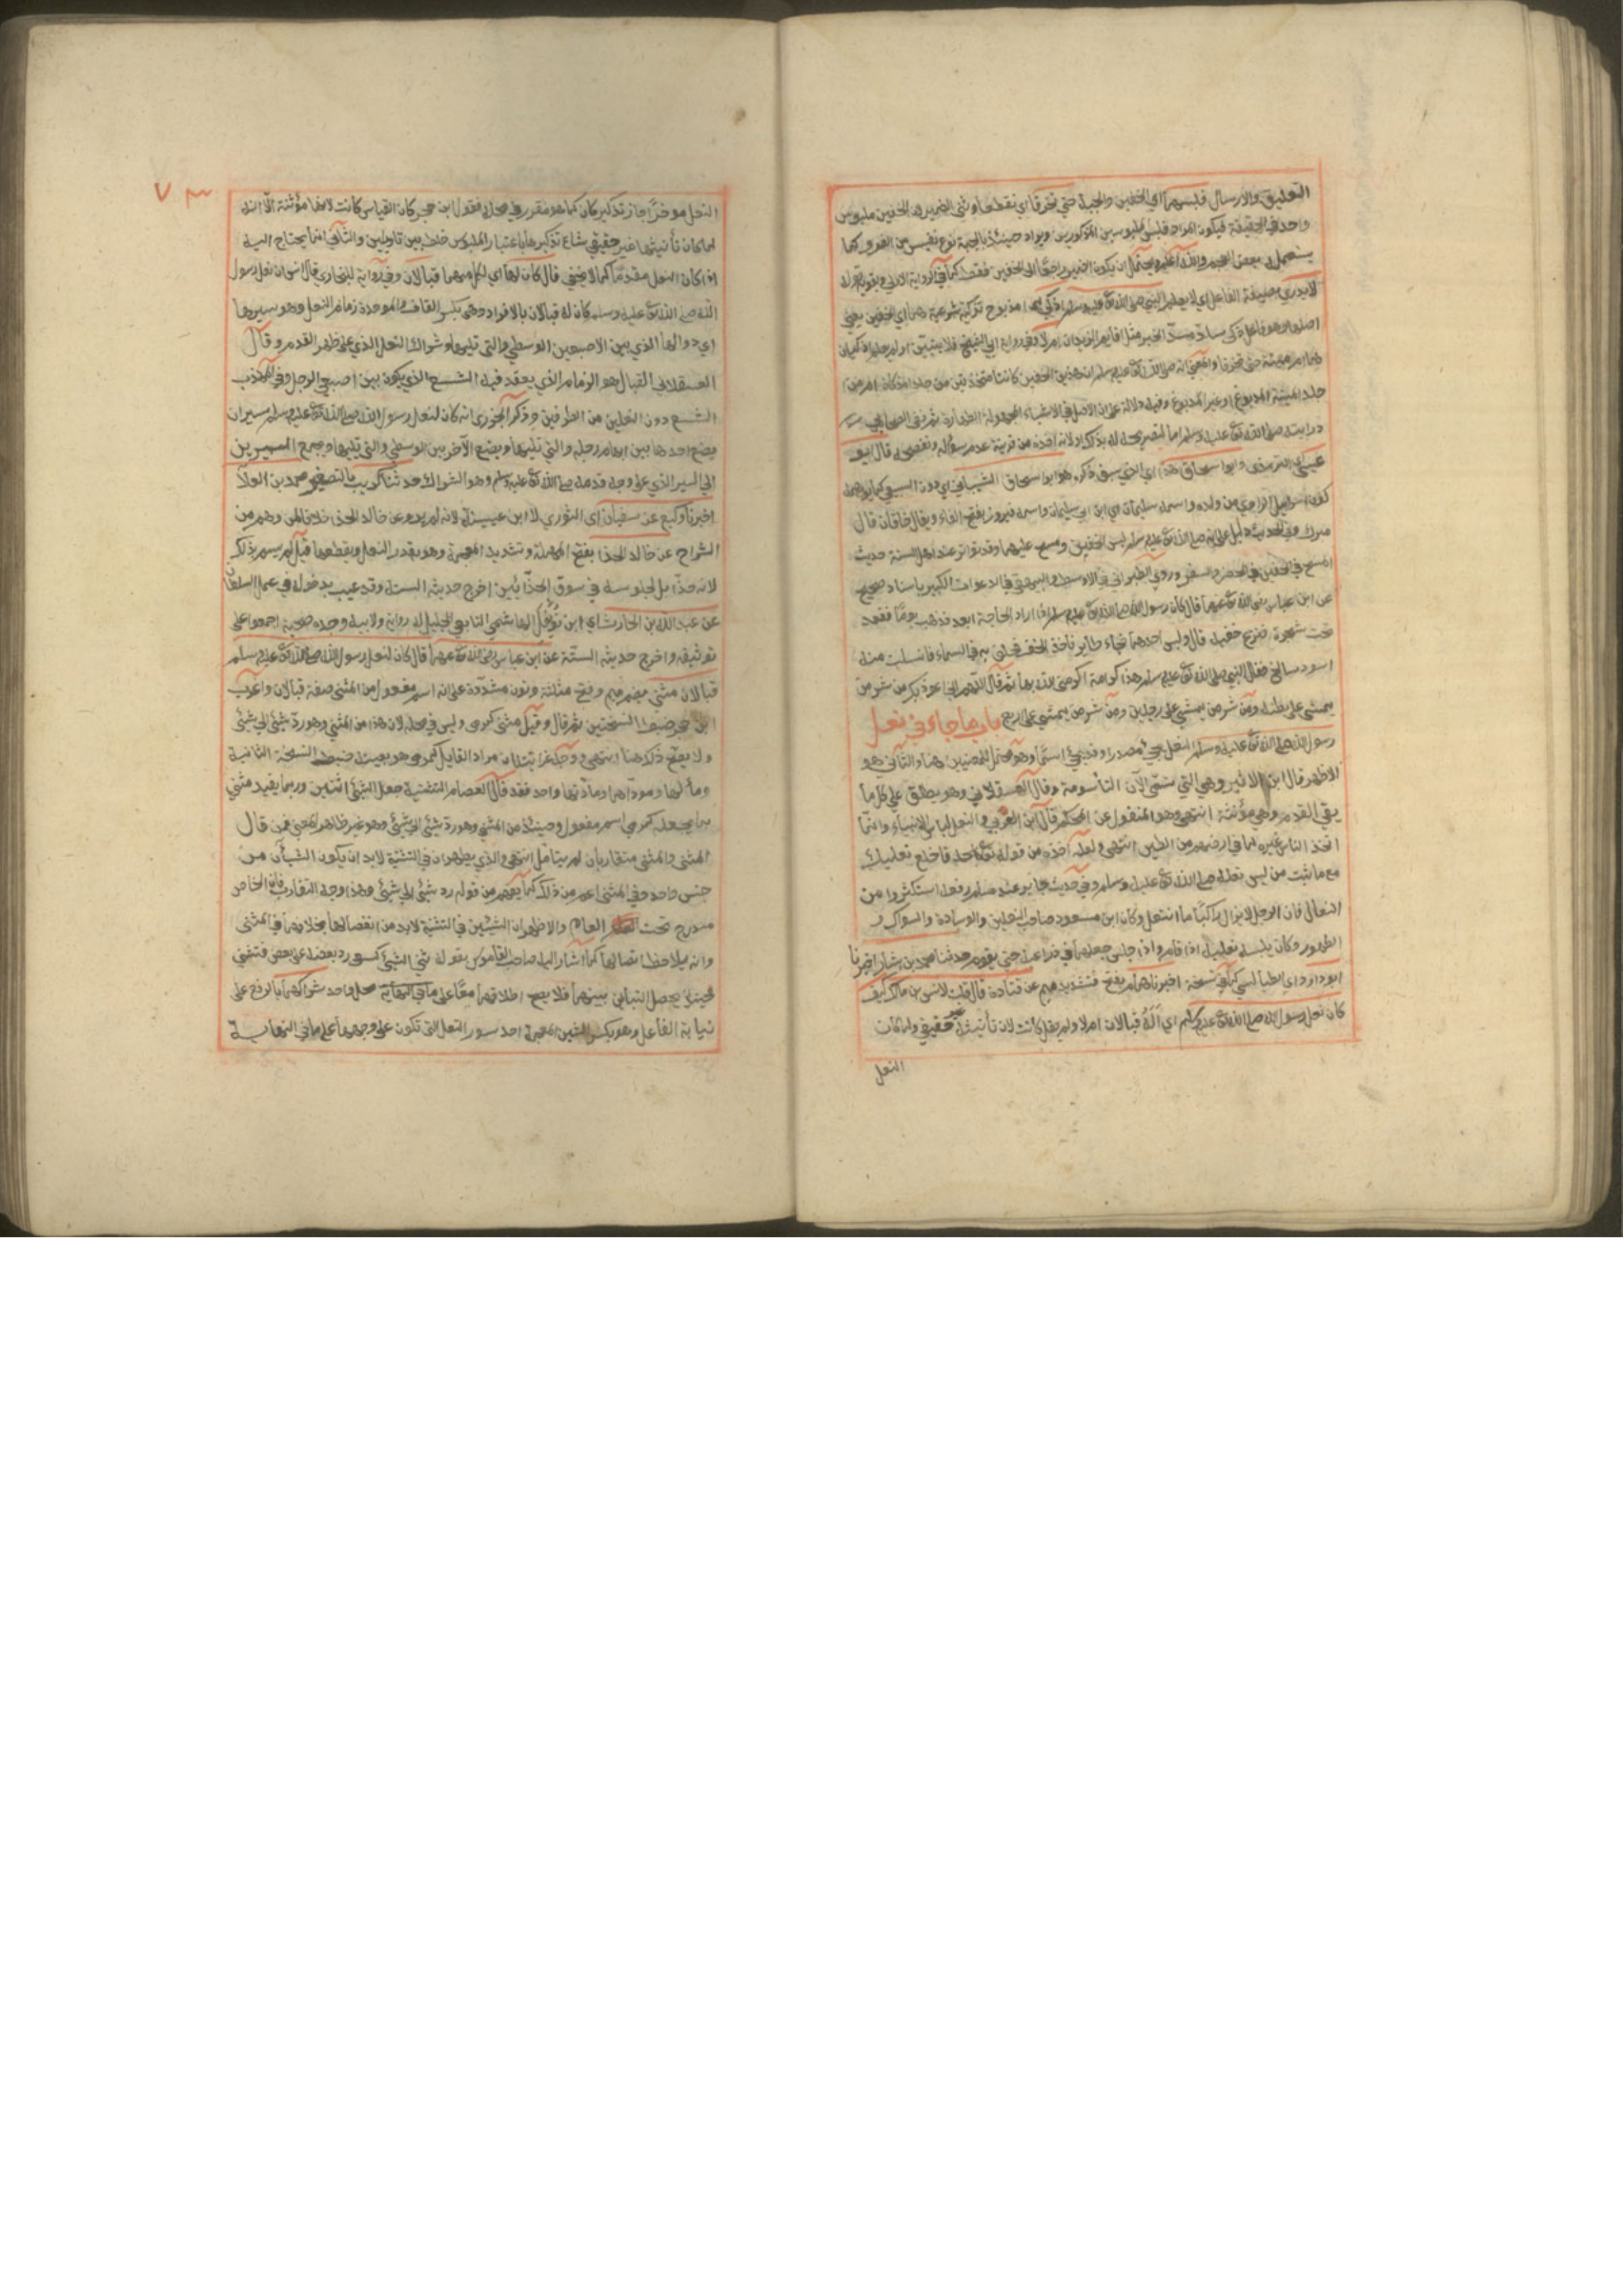 التعليق والارسال فلبسهما اي الخفين والجبة حتى تخرقا اي تقطعا وثنى الضمير لان الخفين ملبوس
واحد في الحقيقة فيكون المراد فلبس الملبوسين المذكورين ويراد حينئذ بالجبة نوع نفيس من الفرو كما
يستعمل في بعض العجم والله اعلم ويحتمل ان يكون الضمير راجعا الى الخفين فقط كما في الرواية الاولى ويقويه قوله
لا يدري بصيغة الفاعل اي لا يعلم النبي صلى الله تع عليه وسلم اذكي هما اي مذبوح تزكية شرعية هما اي الخفين يعني
اصلهما وهو فاعل ذكي سادّ مسدّ الخبر مثل اقايم الزيدان ام لا وفي رواية ابي الشيخ فلا يتبين اولم يعلم اذكيان
هما ام ميتة حتى تخرقا والمعنى انه صلى الله تع عليه وسلم ان هذين الخفين كانتا متخذتين من جلد المذكاة ام من
جلد الميتة المدبوغ او غير المدبوغ وفيه دلالة على ان الاصل في الاشياء المجهولة الطهارة ثم نفى الصحابي
درايته صلى الله تع عليه وسلم اما لتصريحه له بذلك او لانه اخذه من قرينة عدم سؤاله وتفحصه قال ابو
عيسى اي الترمذي وابو اسحاق هذا اي الذي سبق ذكره هو ابو اسحاق الشيباني اي دون السبيعي كما يوهمه
كون اسرائيل الراوي من ولده واسمه سليمان اي ابن ابي سليمان واسمه فيروز بفتح الفاء ويقال خاقان قال
ميرك وفي الحديث دليل على انه صلى الله تع عليه وسلم لبس الخفين ومسح عليهما وقد تواتر عند اهل السنة حديث
المسح في الخفين في الحضر والسفر وروى الطبراني في الاوسط والبيهقي في الدعوات الكبير باسناد صحيح
عن ابن عباس رضي الله تع عنهما قال كان رسول الله صلى الله تع عليه وسلم اذا اراد الحاجة ابعد فذهب يوما فقعد
تحت شجرة فنزع خفيه قال ولبس احدهما فجاء طاير فاخذ الخف فحلق به في السماء فانسلت منه
اسود سالخ فقال النبي صلى الله تع عليه وسلم هذا كرامة اكرمني الله بها ثم قال اللهم اني اعوذ بك من شر من
يمشي على بطنه ومن شر من يمشي على رجلين ومن شر من يمشي على اربع باب ما جاء في نعل
رسول الله صلى الله تع عليه وسلم النعل يجيء مصدرا وقد يجيء اسما وهو محتمل للمعنيين هنا والثاني هو
الاظهر قال ابن الاثير وهي التي تسمى الآن التأسومة وقال العسقلاني وهو يطلق على كل ما
يقي القدم وهي مؤنثة انتهى وهو المنقول عن المحكم قال ابن العربي والنعل لباس الانبياء وانما
اتخذ الناس غيره لما في ارضهم من الطين انتهى ولعله اخذه من قوله تع فاخلع نعليك
مع ما ثبت من لبس نعله صلى الله تع عليه وسلم وفي حديث جابر عند مسلم رفعه استكثروا من
النعال فان الرجل لا يزال راكبا ما انتعل وكان ابن مسعود صاحب النعلين والوسادة والسواك و
الطهور وكان يلبسه نعليه اذا قام واذا جلس جعلهما في ذراعيه حتى يقوم حدثنا محمد بن بشار اخبرنا
ابو داود اي الطيالسي كما في نسخة اخبرنا همام بفتح فتشديد ميم عن قتادة قال قلت لانس بن مالك كيف
كان نعل رسول الله صلى الله تع عليه وسلم اي أله قبالان ام لا ولم يقل كانت لان تأنيثه غير حقيقي ولما كان
النعل
٧٣
النعل مؤخرا جاز تذكير كان كما هو مقرر في محله فقول ابن حجر كان القياس كانت لانها مؤنثة الا انه
لما كان تأنيثها غير حقيقي شاع تذكيرها باعتبار الملبوس خلط بين تاويلين والثاني انما يحتاج اليه
اذا كان النعل مقدما كما لا يخفى قال كان لهما اي لكل منهما قبالان وفي رواية للبخاري قال انس ان نعل رسول
الله صلى الله تع عليه وسلم كان له قبالان بالافراد وهي بكسر القاف والموحدة زمام النعل وهو سيرها
اي دوالها الذي بين الاصبعين الوسطى والتي تليها وشراك النعل الذي على ظهر القدم وقال
العسقلاني القبال هو الزمام الذي يعقد فيه الشسع الذي يكون بين اصبعي الرجل وفي المهذب
الشسع دون النعلين من الطرفين وذكر الجزري انه كان لنعل رسول الله صلى الله تع عليه وسلم سيران
يضع احدهما بين ابهام رجله والتي تليها ويضع الآخر بين الوسطى والتي تليها ويجمع السيرين
الى السير الذي على وجه قدمه صلى الله تع عليه وسلم وهو الشراك حدثنا ابو كريب بالتصغير محمد بن العلاء
اخبرنا وكيع عن سفيان اي الثوري لا ابن عيينة لانه لم يرو عن خالد الحذاء خلافا لمن وهم من
الشراح عن خالد الحذاء بفتح المهملة وتشديد المعجمة وهو يقدر النعل ويقطعها قيل لم يسم بذلك
لانه حذاء بل لجلوسه في سوق الحذائين اخرج حديثه الستة وقد عيب بدخوله في عمل السلطان
عن عبد الله بن الحارث اي ابن نوفل الهاشمي التابعي الجليل له رواية ولابيه وجده صحبة اجمعوا على
توثيقه واخرج حديثه الستة عن ابن عباس رضي الله تع عنهما قال كان لنعل رسول الله صلى الله تع عليه وسلم
قبالان مثنى بضم ميم وفتح مثلثة ونون مشددة على انه اسم مفعول من المثنى صفة قبالان واغرب
ابن حجر ضبط النسختين ثم قال وقيل مثنى كرمى وليس في محله لان هذا من المثنى وهو رد شيء الى شيء
ولا يصح ذلك هنا انتهى ووجه غرابته ان مراد القايل كمرمى هو بعينه ضبط النسخة الثانية
ومآلهما ومؤداهما ومادتهما واحد فقد قال العصام التثنية جعل الشيء اثنين وربما يقيد مثنى
بما يجعله كرمي اسم مفعول وحينئذ من المثنى وهو رد شيء الى شيء وهو غير ظاهر المعنى فمن قال
المثنى والمثنى متقاربان لم يتامل انتهى والذي يظهر ان في التثنية لابد ان يكون الشيآن من
جنس واحد وفي المثنى اعم من ذلك كما يفهم من قوله رد شيء الى شيء وهذا وجه التقارب فان الخاص
مندرج تحت العام والاظهر ان الشيئين في التثنية لابد من انفصالهما بخلافهما في المثنى
وانه يلاحظ اتصالهما كما اشار اليه صاحب القاموس بقوله ثنى الشيء كسعى رد بعضه على بعض فتثنى
فحينئذ يحصل التباين بينهما فلا يصح اطلاقهما معا على محل واحد شراكهما بالرفع على
نيابة الفاعل وهو بكسر الشين المعجمة احد سيور النعل التي تكون على وجهها على ما في النهاية